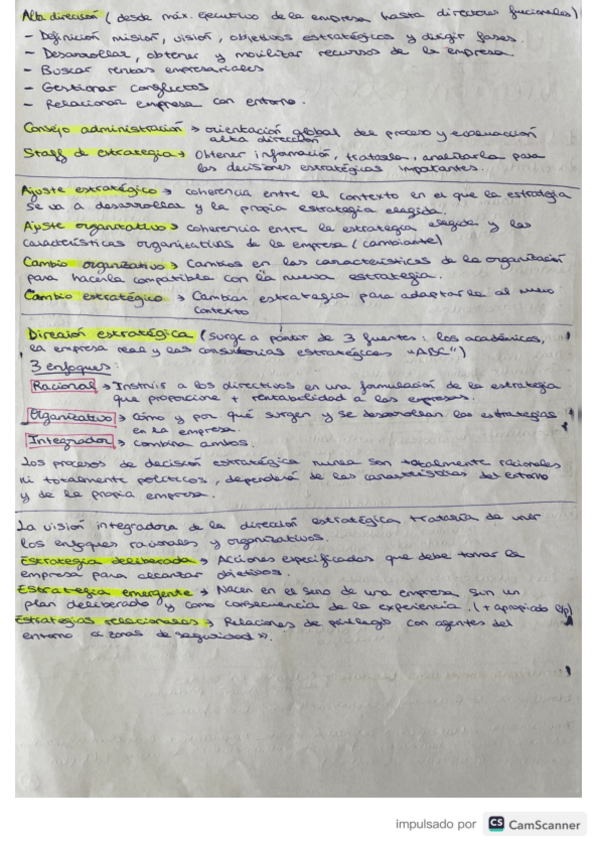 Alta dirección (desde máx. ejecutivo de la empresa hasta directores funcionales)
- Definición misión, visión, objetivos estratégicos y dirigir fases.
- Desarrollar, obtener y movilizar recursos de la empresa.
- Buscar rentas empresariales
- Gestionar conflictos
- Relacionar empresa con entorno.
Consejo administración → orientación global del proceso y evaluación
alta dirección
Staff de estrategia → Obtener información, tratarla, analizarla para
las decisiones estratégicas importantes.
Ajuste estratégico → coherencia entre el contexto en el que la estrategia
se va a desarrollar y la propia estrategia elegida.
Ajuste organizativo → coherencia entre la estrategia elegida y las
características organizativas de la empresa (cambiante)
Cambio organizativo → Cambios en las características de la organización
para hacerla compatible con la nueva estrategia.
Cambio estratégico → Cambiar estrategia para adaptarla al nuevo
contexto
Dirección estratégica (surge a partir de 3 fuentes: los académicos,
la empresa real y las consultorías estratégicas "ABC")
3 enfoques:
Racional → Instruir a los directivos en una formulación de la estrategia
que proporcione + rentabilidad a las empresas.
Organizativo → Cómo y por qué surgen y se desarrollan las estrategias
en la empresa.
Integrador → Combina ambos.
Los procesos de decisión estratégica nunca son totalmente racionales
ni totalmente políticos, dependerá de las características del entorno
y de la propia empresa.
La visión integradora de la dirección estratégica trataría de unir
los enfoques racionales y organizativos.
Estrategia deliberada → Acciones especificadas que debe tomar la
empresa para alcanzar objetivos.
Estrategia emergente → Nacen en el seno de una empresa sin un
plan deliberado y como consecuencia de la experiencia. (+ apropiado lp)
Estrategias relacionales → Relaciones de privilegio con agentes del
entorno « zonas de seguridad ».
impulsado por CS CamScanner